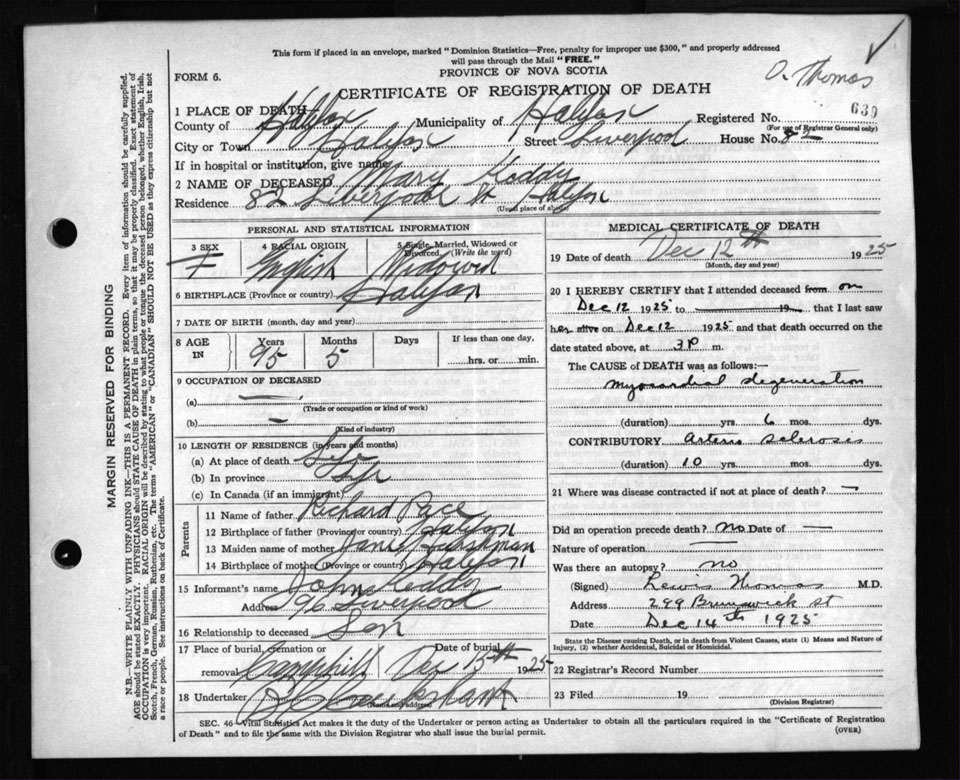 This form if placed in an envelope, marked "Dominion Statistics—Free, penalty for improper use $300," and properly addressed
will pass through the Mail "FREE."
PROVINCE OF NOVA SCOTIA
FORM 6.
CERTIFICATE OF REGISTRATION OF DEATH
O. Thomas
1 PLACE OF DEATH
County of Halifax Municipality of Halifax Registered No. 630
(For use of Registrar General only)
City or Town Halifax Street Liverpool House No. 82
If in hospital or institution, give name
2 NAME OF DECEASED Mary
Residence 82 Liverpool St Halifax
(Usual place of abode)
PERSONAL AND STATISTICAL INFORMATION
3 SEX 4 RACIAL ORIGIN 5 Single, Married, Widowed or Divorced (Write the word)
F English Widowed
6 BIRTHPLACE (Province or country) Halifax
7 DATE OF BIRTH (month, day and year)
8 AGE IN Years Months Days If less than one day,
95 5 hrs. or min.
9 OCCUPATION OF DECEASED
(a) —
(Trade or occupation or kind of work)
(b) —
(Kind of industry)
10 LENGTH OF RESIDENCE (in years and months)
(a) At place of death Life
(b) In province Life
(c) In Canada (if an immigrant)
Parents
11 Name of father Richard
12 Birthplace of father (Province or country) Halifax
13 Maiden name of mother Jane
14 Birthplace of mother (Province or country) Halifax
15 Informant's name John
Address 96 Liverpool
16 Relationship to deceased Son
17 Place of burial, cremation or removal Date of burial
Camphill Dec 15th 1925
18 Undertaker
(Name and address)
MEDICAL CERTIFICATE OF DEATH
19 Date of death Dec 12th 1925
(Month, day and year)
20 I HEREBY CERTIFY that I attended deceased from on
Dec 12 1925 to 19 that I last saw
her alive on Dec 12 1925 and that death occurred on the
date stated above, at 3 P m.
The CAUSE OF DEATH was as follows:—
myocardial degeneration
(duration) yrs. 6 mos. dys.
CONTRIBUTORY arterio sclerosis
(duration) 10 yrs. mos. dys.
21 Where was disease contracted if not at place of death? —
Did an operation precede death? no Date of —
Nature of operation —
Was there an autopsy? no
(Signed) Lewis Thomas M.D.
Address 299 Brunswick st
Date Dec 14th 1925
State the Disease causing Death, or in death from Violent Causes, state (1) Means and Nature of
Injury, (2) whether Accidental, Suicidal or Homicidal.
22 Registrar's Record Number
23 Filed 19
(Division Registrar)
SEC. 46—Vital Statistics Act makes it the duty of the Undertaker or person acting as Undertaker to obtain all the particulars required in the "Certificate of Registration
of Death" and to file the same with the Division Registrar who shall issue the burial permit.
(OVER)
MARGIN RESERVED FOR BINDING
N.B.—WRITE PLAINLY WITH UNFADING INK—THIS IS A PERMANENT RECORD. Every item of information should be carefully supplied.
AGE should be stated EXACTLY. PHYSICIANS should STATE CAUSE OF DEATH in plain terms, so that it may be properly classified. Exact statement of
OCCUPATION is very important. RACIAL ORIGIN will be described by stating to what people or tongue the deceased person belonged, whether English, Irish,
Scotch, French, German, Russian, Ruthenian, etc. The terms "AMERICAN" or "CANADIAN" SHOULD NOT BE USED as they express citizenship but not
a race or people. See instructions on back of Certificate.